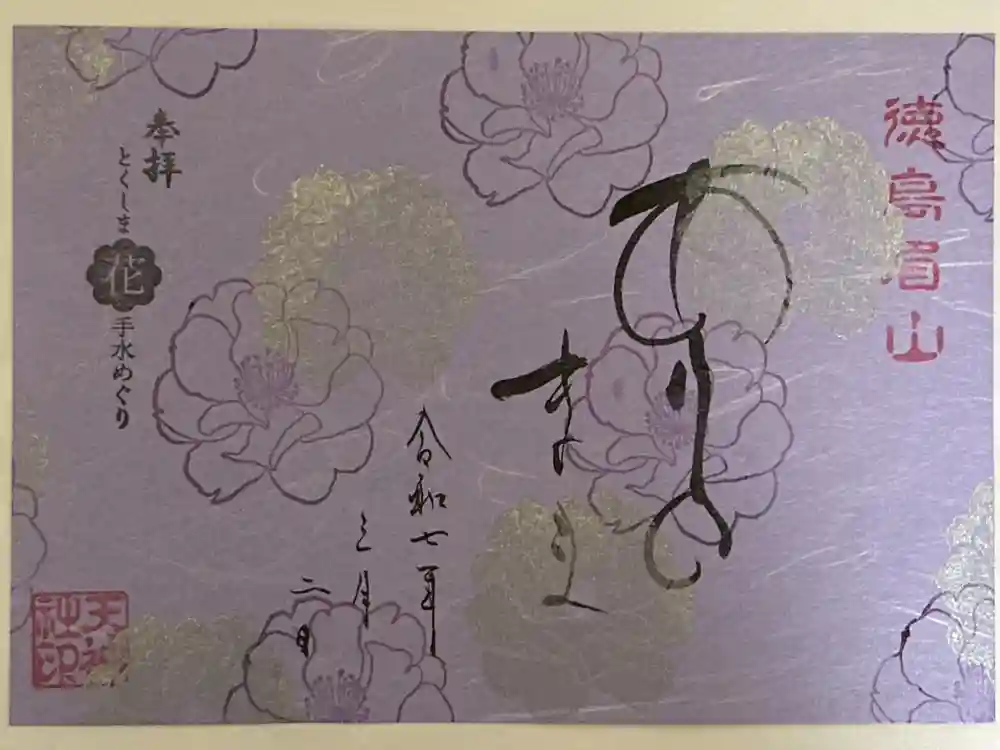 徳島眉山
ありの
まま
令和七年
三月
二日
奉拝
とくしま花手水めぐり
天神社印